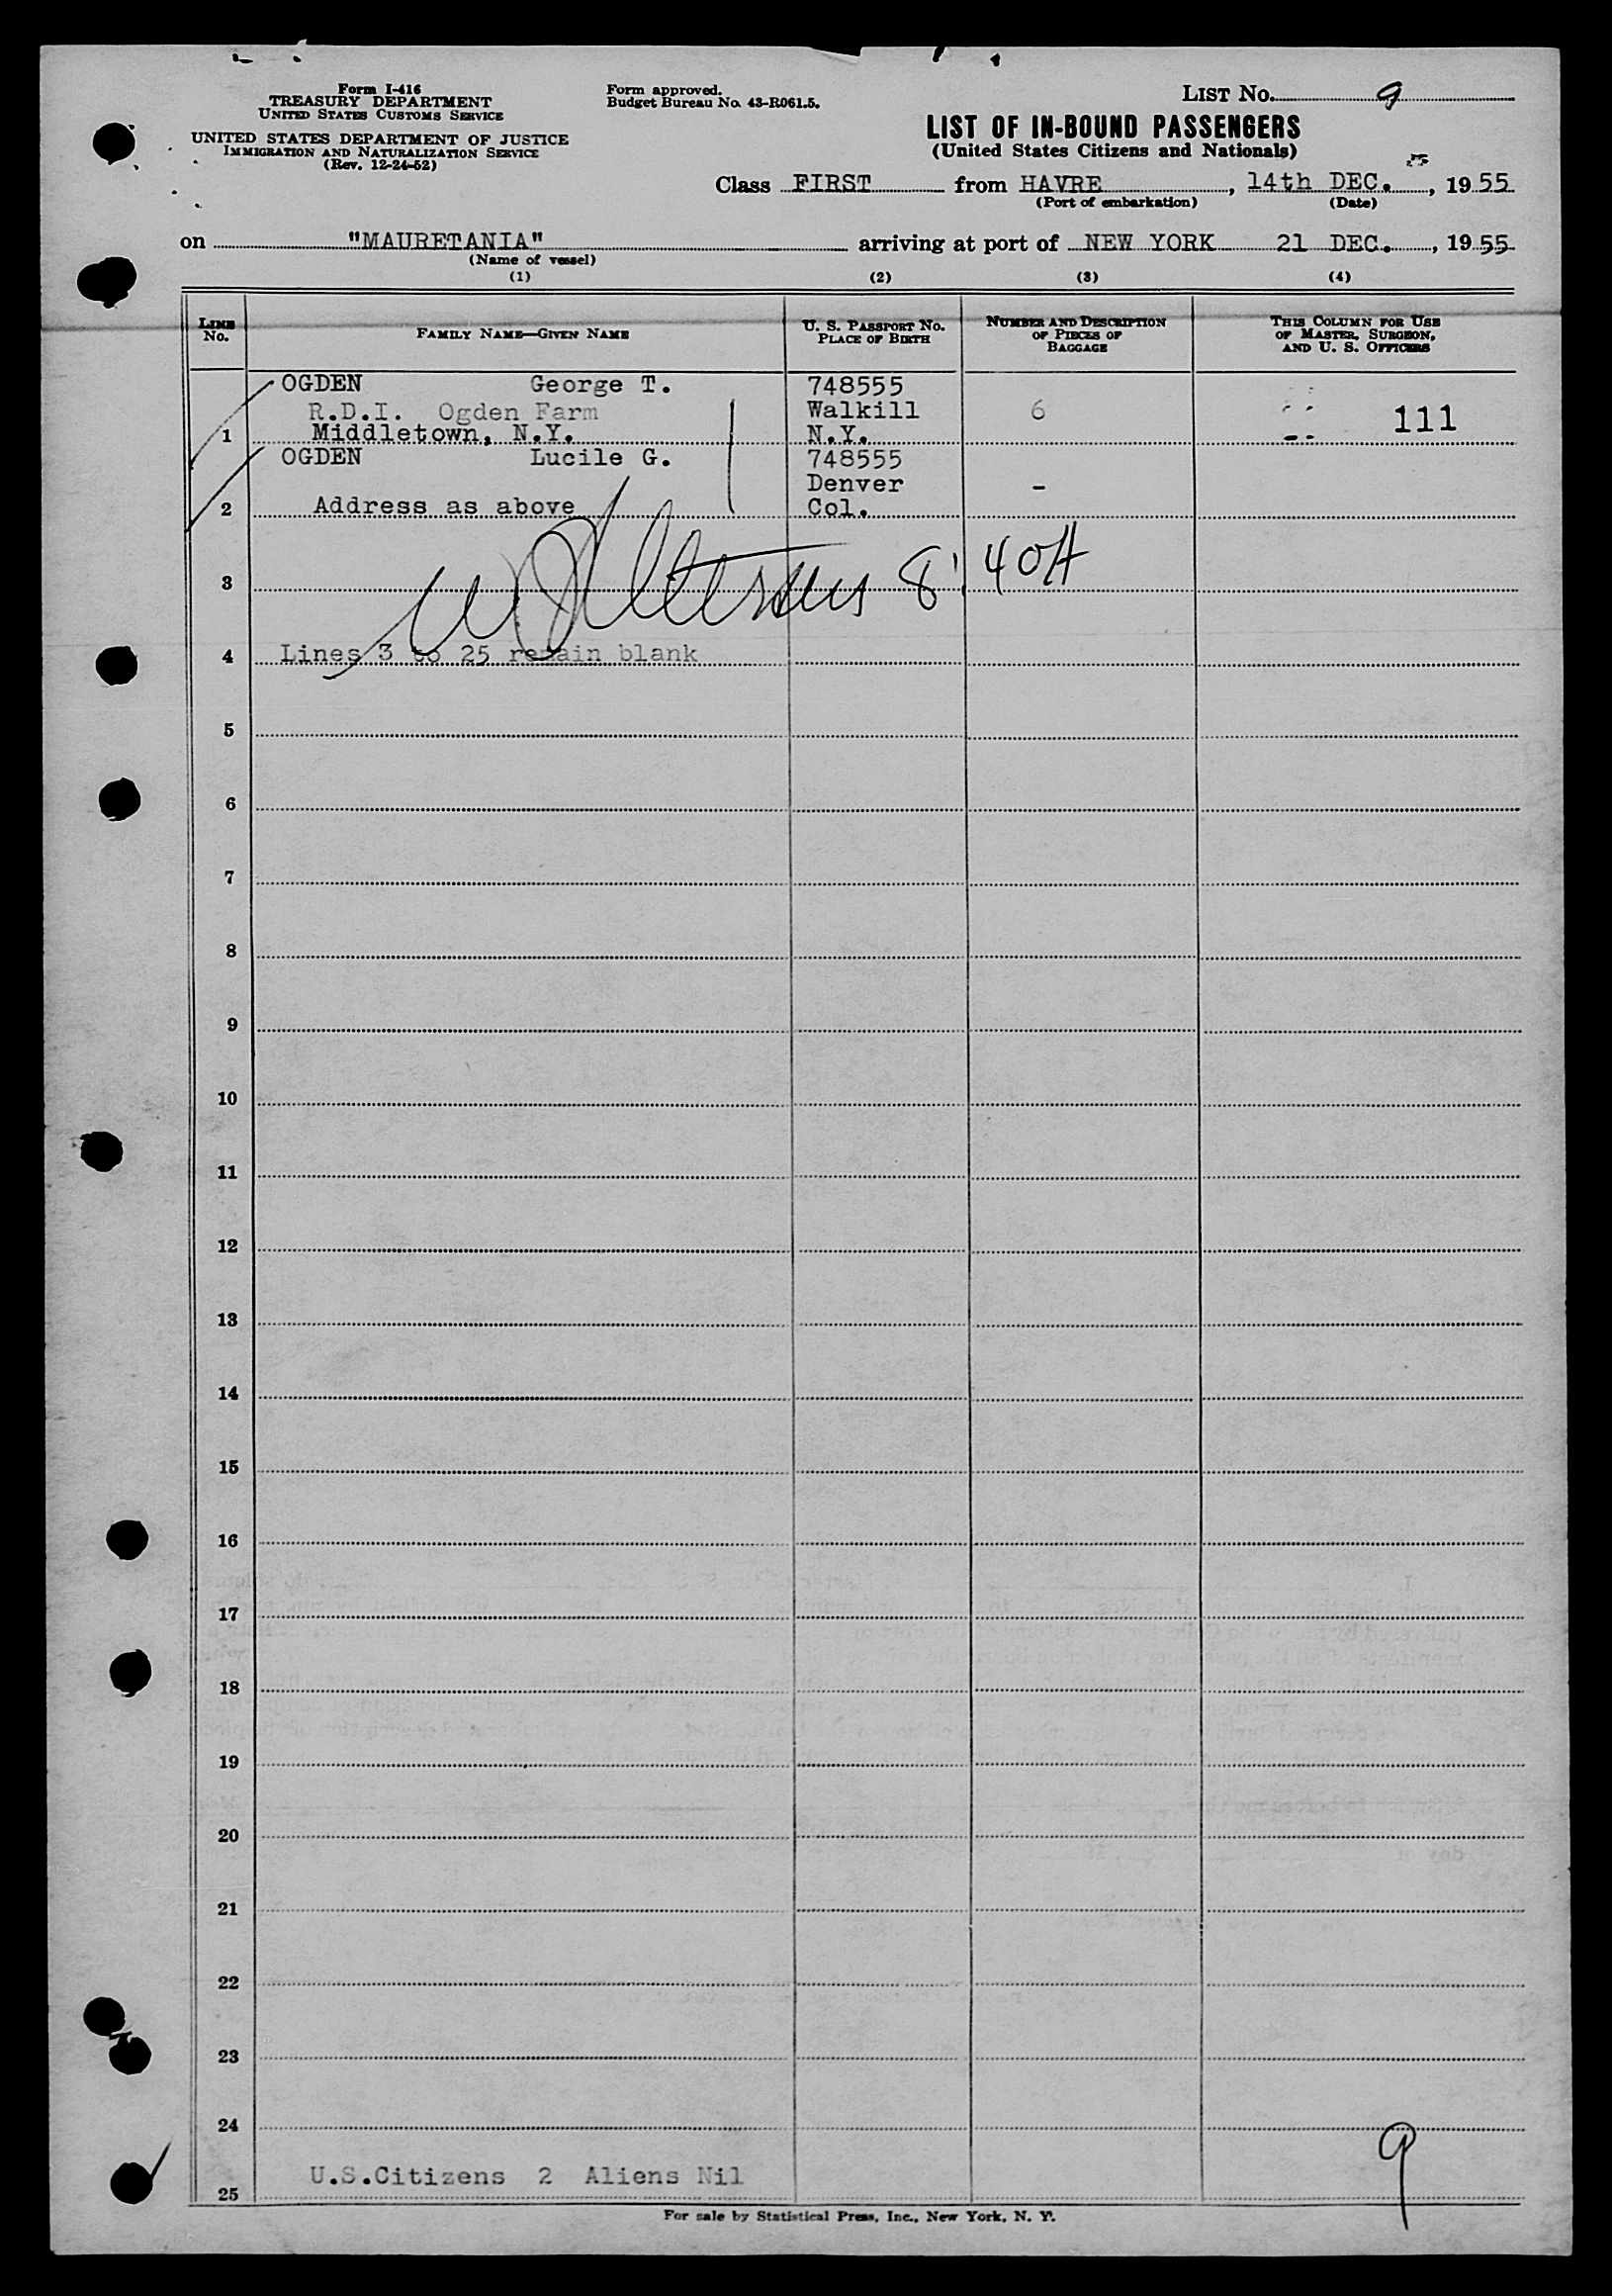 Form I-416
TREASURY DEPARTMENT
UNITED STATES CUSTOMS SERVICE
UNITED STATES DEPARTMENT OF JUSTICE
IMMIGRATION AND NATURALIZATION SERVICE
(Rev. 12-24-52)
Form approved.
Budget Bureau No. 43-R061.5.
LIST No. 9
LIST OF IN-BOUND PASSENGERS
(United States Citizens and Nationals)
Class FIRST from HAVRE, 14th DEC., 1955
(Port of embarkation) (Date)
on "MAURETANIA" arriving at port of NEW YORK 21 DEC., 1955
(Name of vessel)
(1) (2) (3) (4)
LINE No. FAMILY NAME—GIVEN NAME U. S. PASSPORT No. PLACE OF BIRTH NUMBER AND DESCRIPTION OF PIECES OF BAGGAGE THIS COLUMN FOR USE OF MASTER, SURGEON, AND U. S. OFFICERS
OGDEN George T. 748555
R.D.I. Ogden Farm Walkill 6 111
1 Middletown, N.Y. N.Y.
OGDEN Lucile G. 748555
Denver -
2 Address as above Col.
3 8' 40A
4 Lines 3 to 25 remain blank
5
6
7
8
9
10
11
12
13
14
15
16
17
18
19
20
21
22
23
24
U.S.Citizens 2 Aliens Nil
25
9
For sale by Statistical Press, Inc., New York, N. Y.